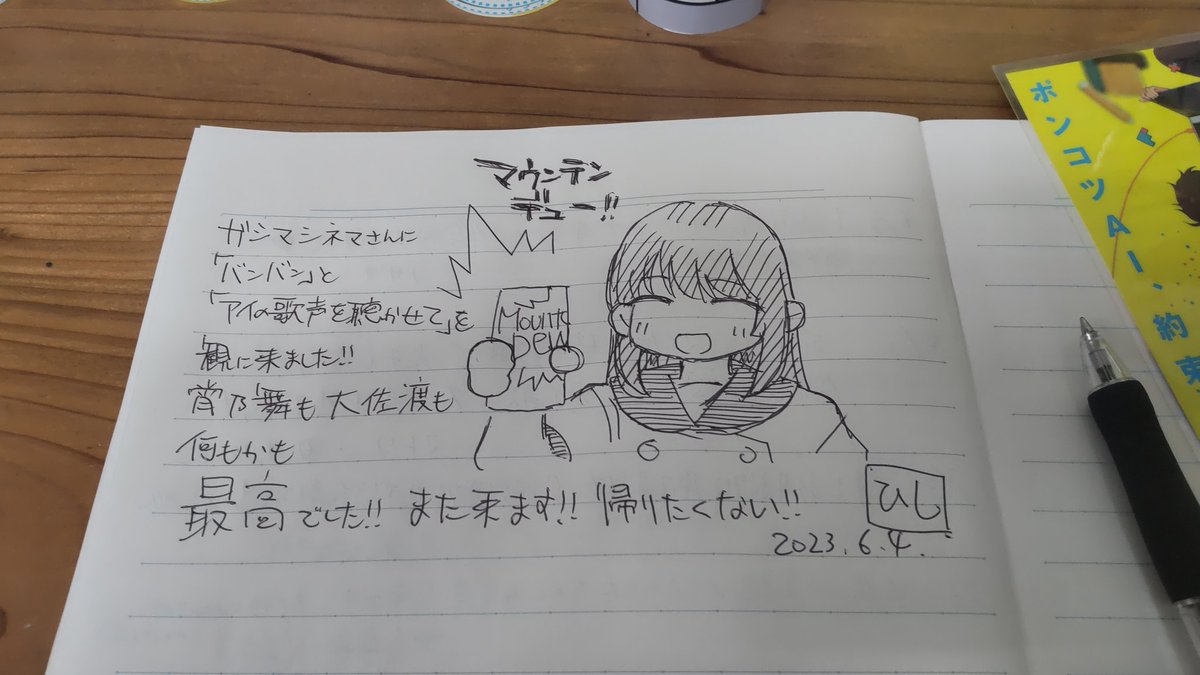 マウンテン
デュー!!
ガシマシネマさんに
「バンバン」と
「アイの歌声を聴かせて」を
観に来ました!!
宵乃舞も大佐渡も
何もかも
最高でした!! また来ます!! 帰りたくない!!
Mountn
Dew
ひし
2023.6.4.
ポンコツAI、約束